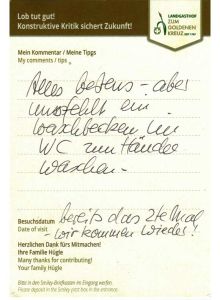 Lob tut gut!
Konstruktive Kritik sichert Zukunft!
LANDGASTHOF
ZUM
GOLDENEN
KREUZ
Mein Kommentar / Meine Tipps
My comments / tips
Alles bestens - aber
ein
Waschbecken im
WC zum Hände
waschen.
Besuchsdatum
Date of visit
bereits das 2te Mal
- wir kommen wieder!
Herzlichen Dank fürs Mitmachen!
Ihre Familie Hügle
Many thanks for contributing!
Your family Hügle
Bitte in den Smiley-Briefkasten im Eingang werfen.
Please deposit in the Smiley post box in the entrance.